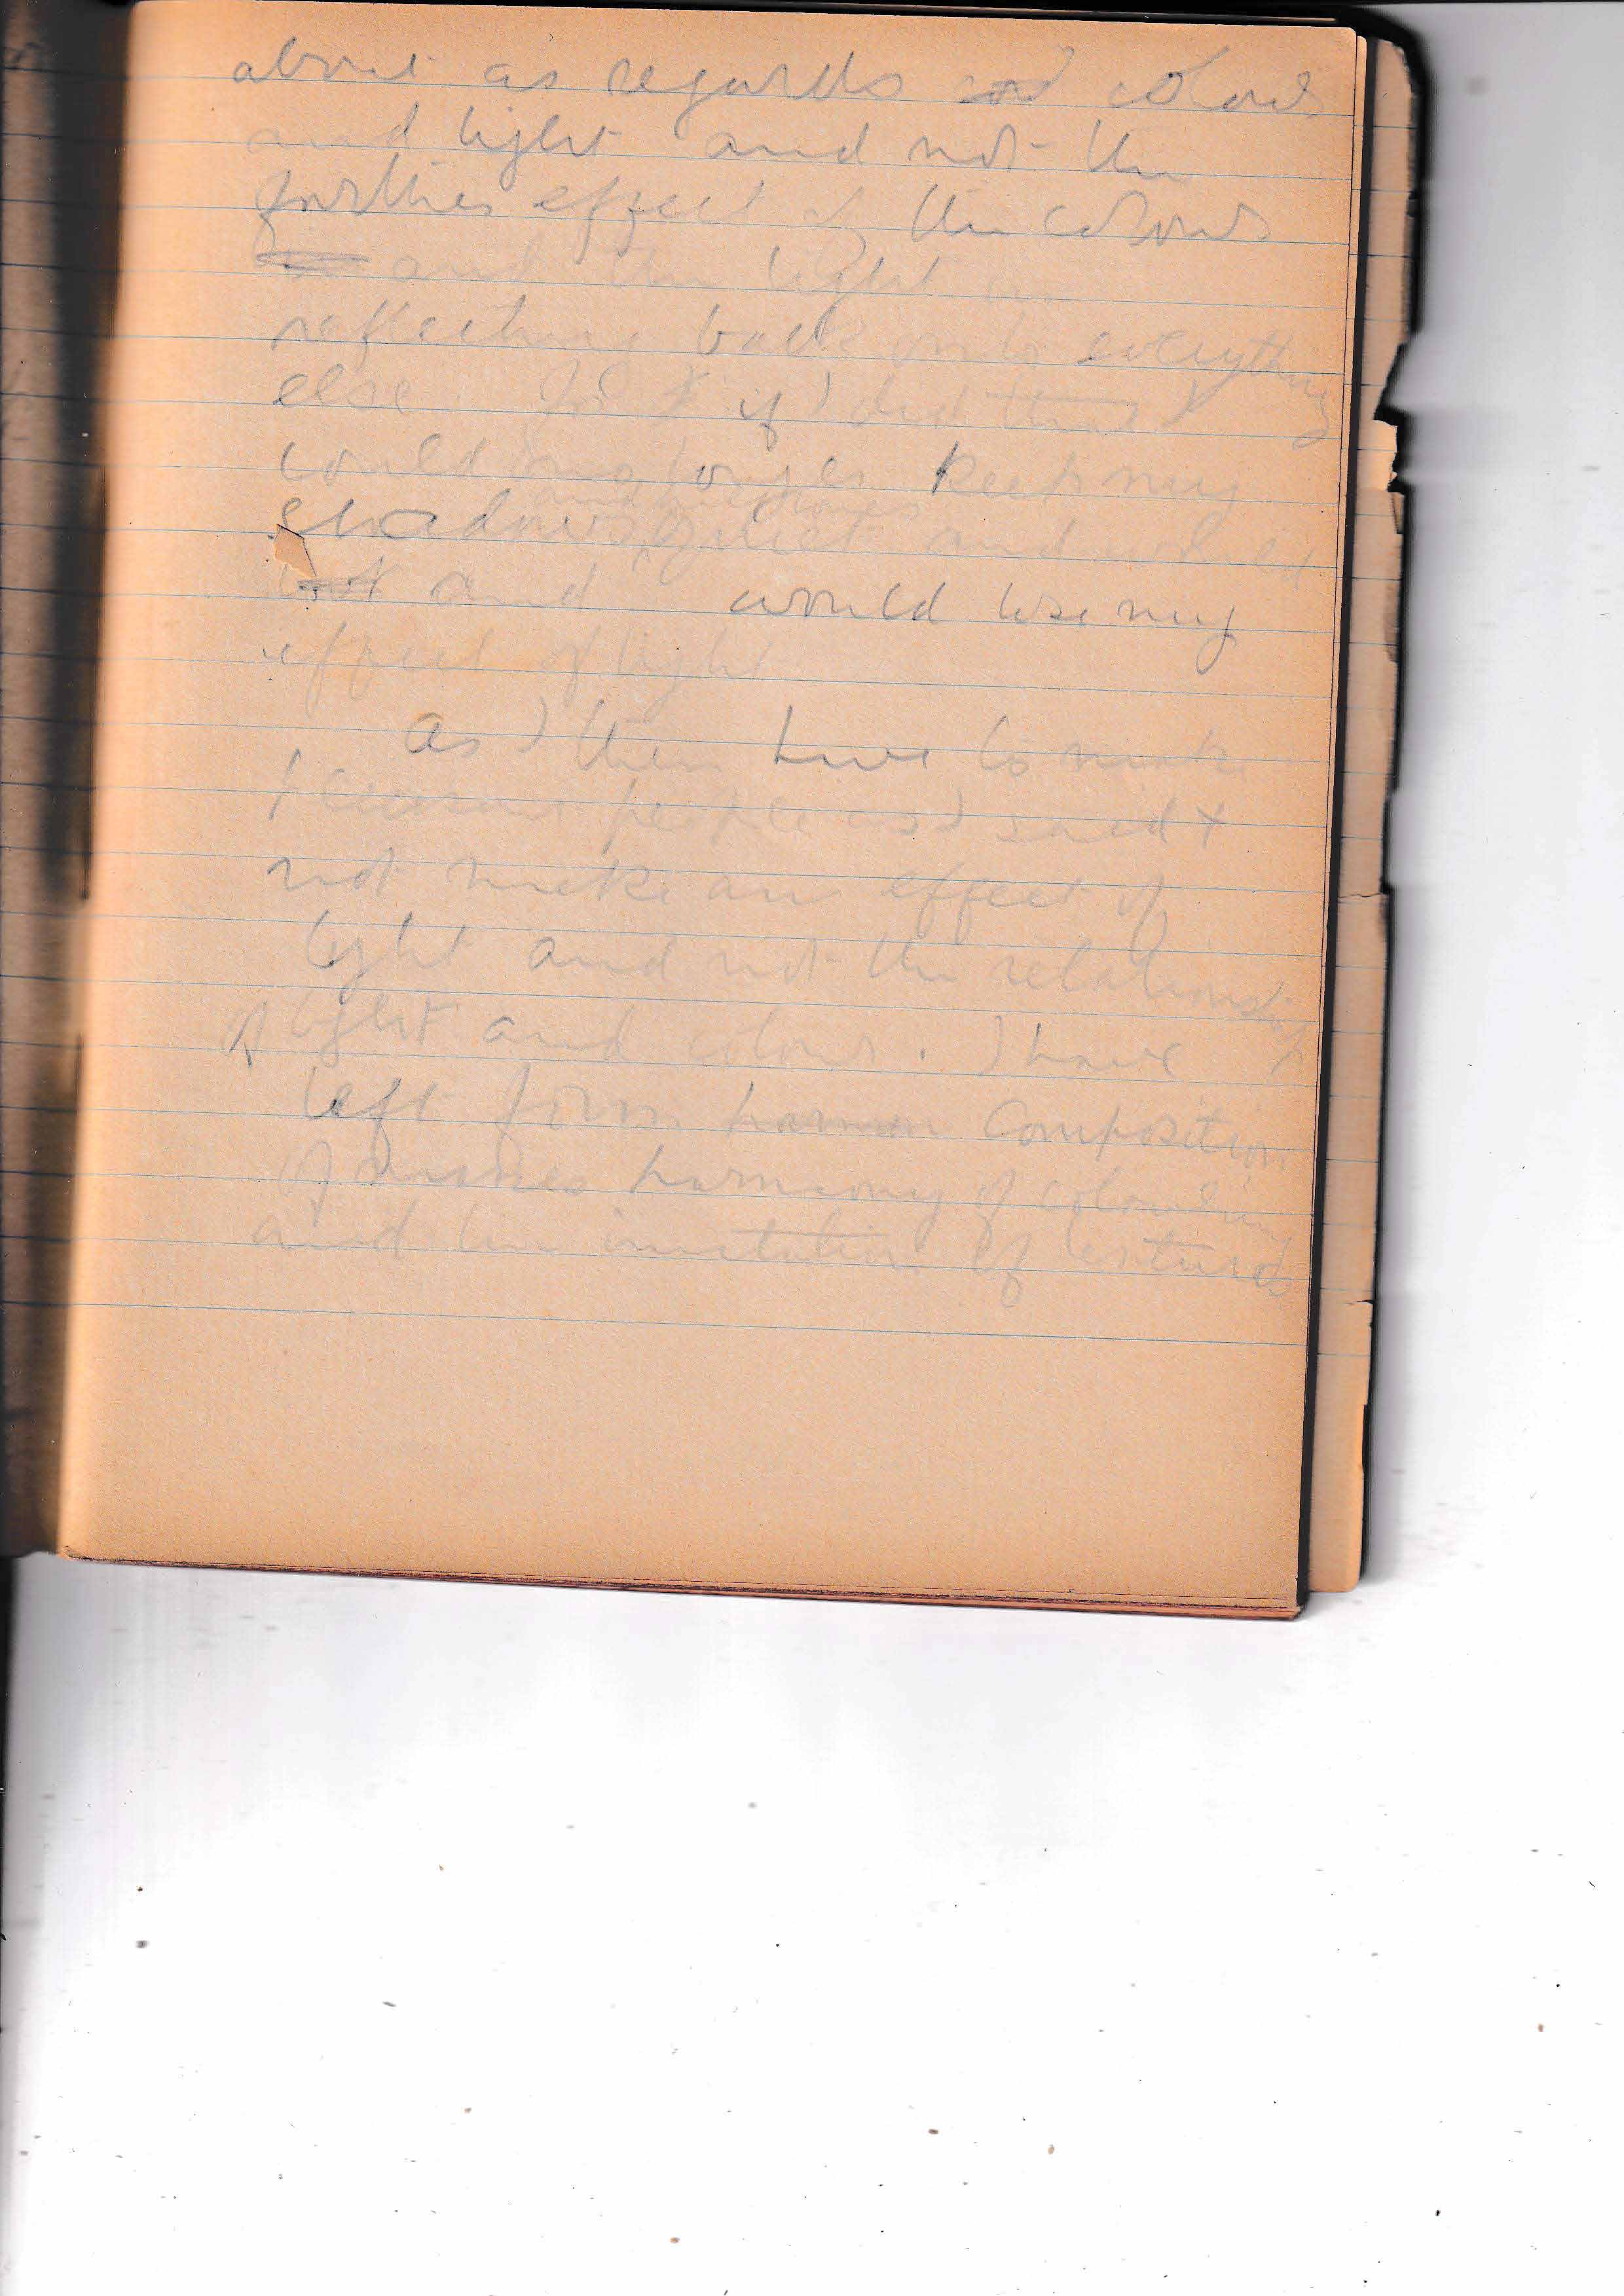 about as regards colours
and light and not the
further effect of the colours
and the light in
reflecting back onto everything
else. For if I did this I
could no longer keep my
and
shadows quiet and
and would lose my
effect of light
As I then have to make
people as I said &
not make an effect of
light and not the relationship
of light and colour. I have
left form harmon composition
of masses harmony of colouring
and line imitation of textures